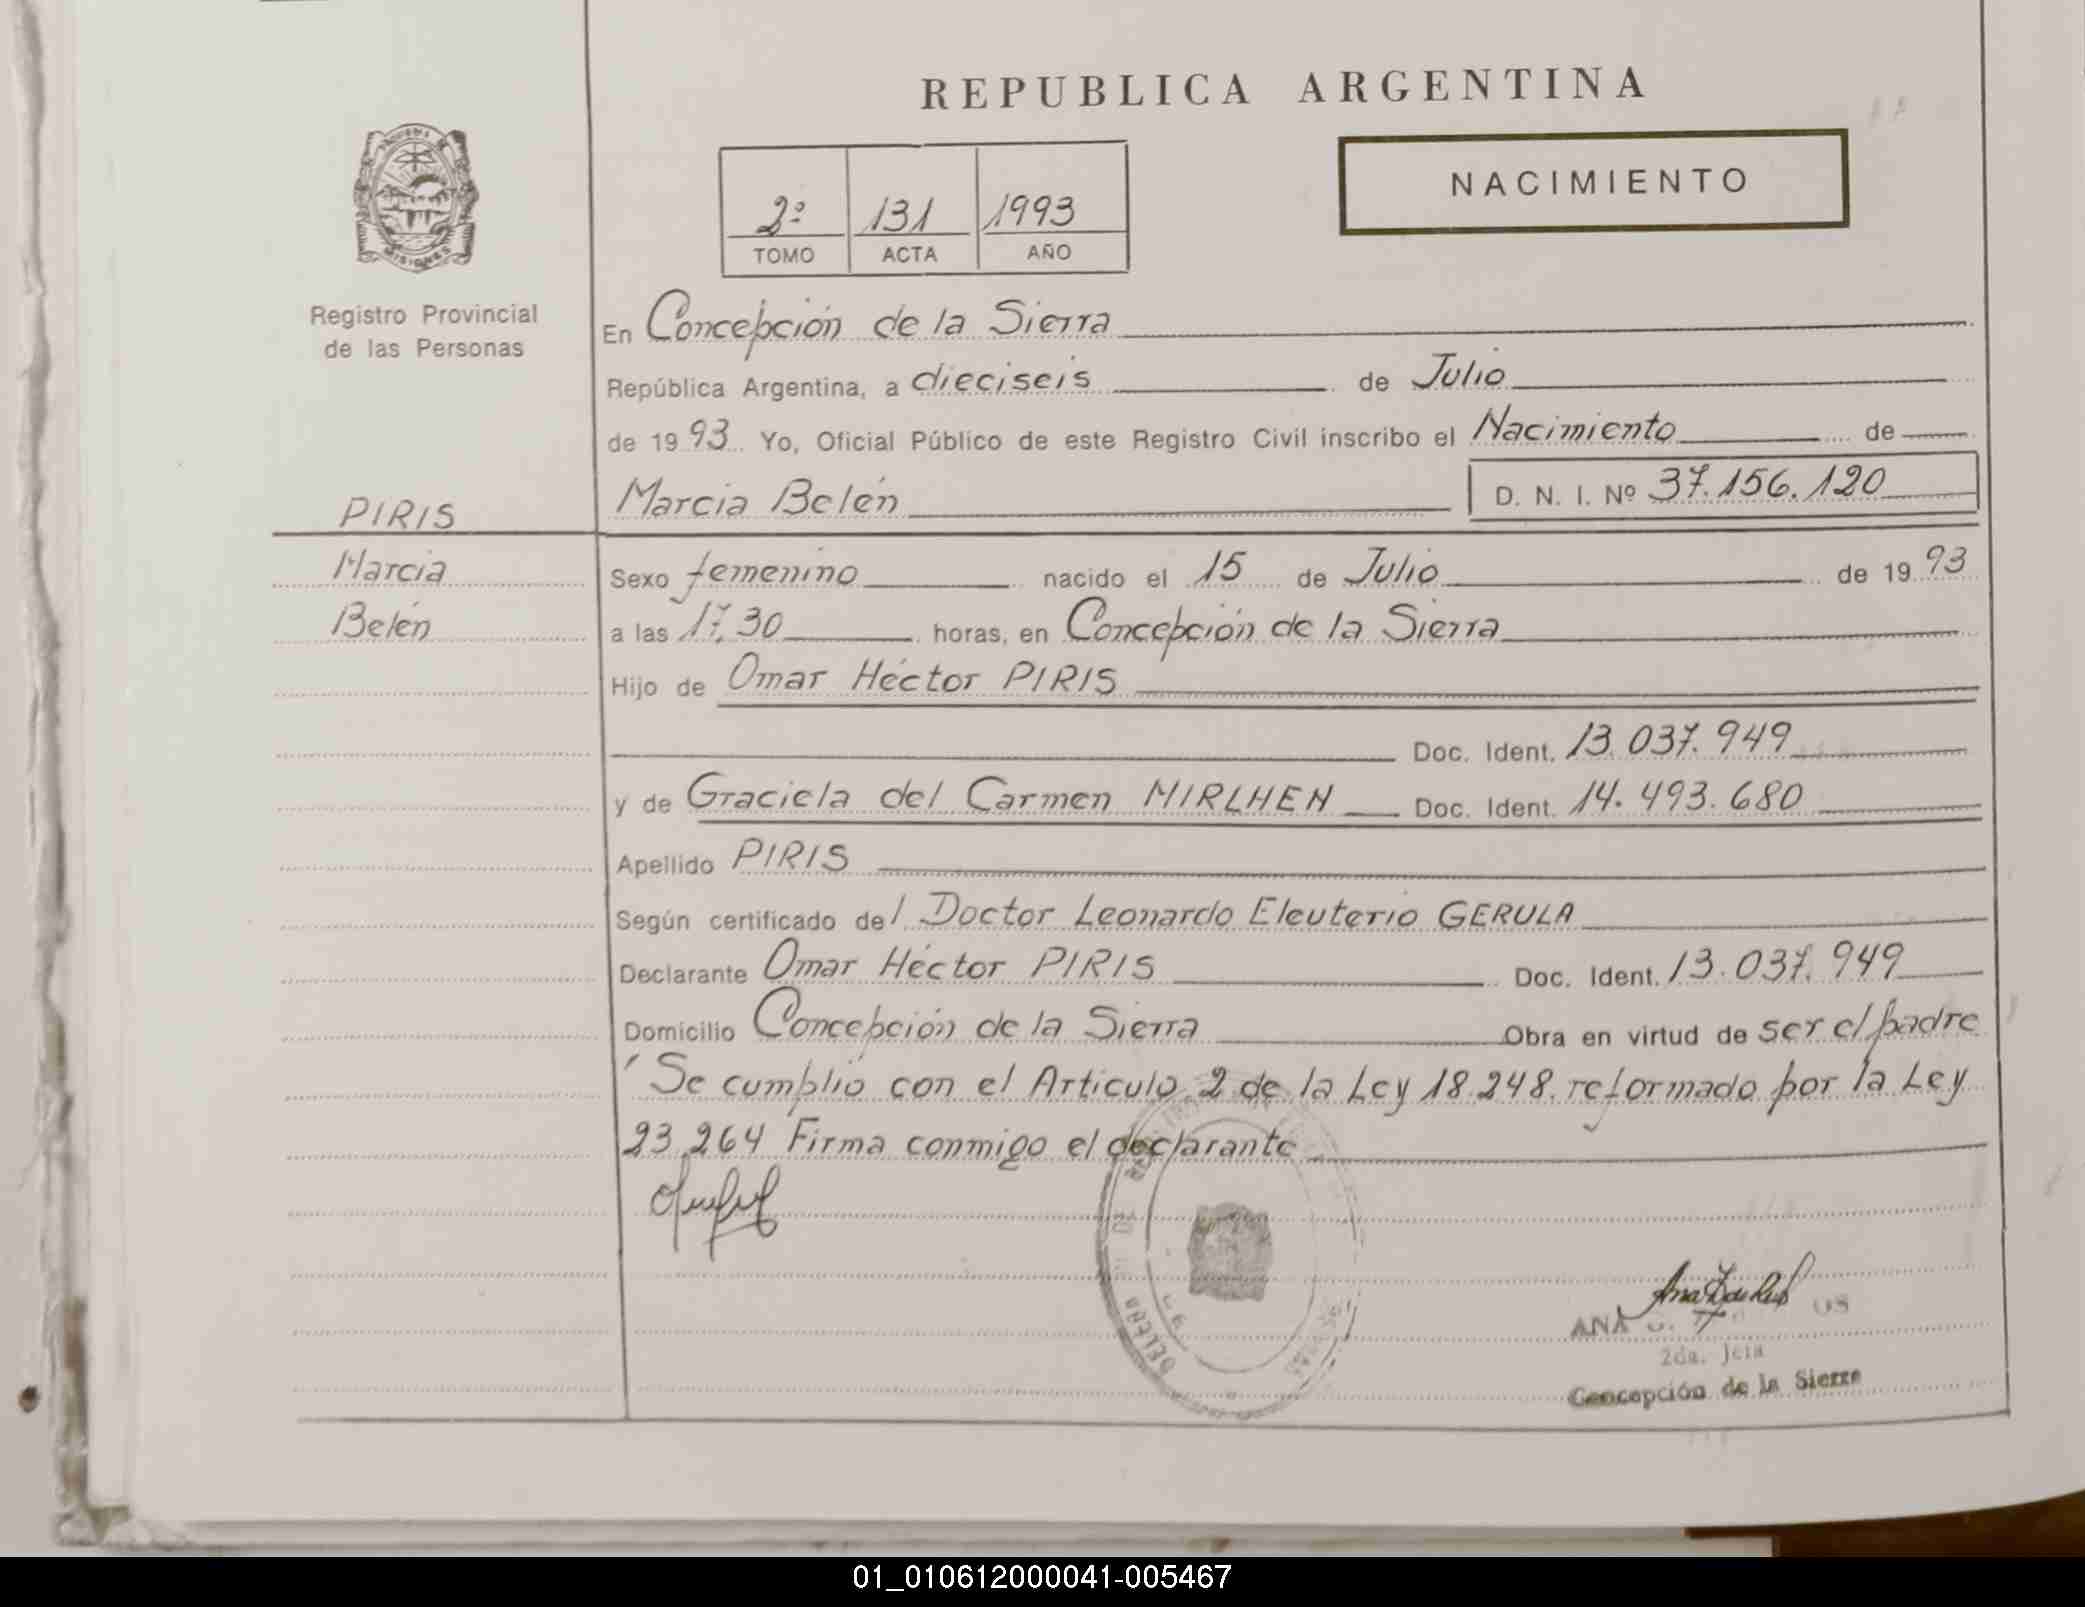 REPUBLICA ARGENTINA
NACIMIENTO
2º 131 1993
TOMO ACTA AÑO
MISIONES
Registro Provincial
de las Personas
En Concepción de la Sierra
República Argentina, a dieciseis de Julio
de 1993 Yo, Oficial Público de este Registro Civil inscribo el Nacimiento de
PIRIS Marcia Belén D. N. I. Nº 37.156.120
Marcia Sexo femenino nacido el 15 de Julio de 1993
Belén a las 17,30 horas, en Concepción de la Sierra
Hijo de Omar Héctor PIRIS
Doc. Ident. 13.037.949
y de Graciela del Carmen MIRLHEN Doc. Ident. 14.493.680
Apellido PIRIS
Según certificado del Doctor Leonardo Eleuterio GERULA
Declarante Omar Héctor PIRIS Doc. Ident. 13.037.949
Domicilio Concepción de la Sierra Obra en virtud de ser el padre
Se cumplió con el Articulo 2 de la Ley 18.248 reformado por la Ley
23.264 Firma conmigo el declarante
ANA
2da. Jefa
Concepción de la Sierra
01_010612000041-005467